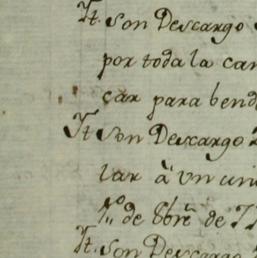 Yt. Son Descargo
por toda la can
çar para bend
Yt Son Descargo 2
var à vn uni
1º de 8bre de 17
Yt. Son Descargo